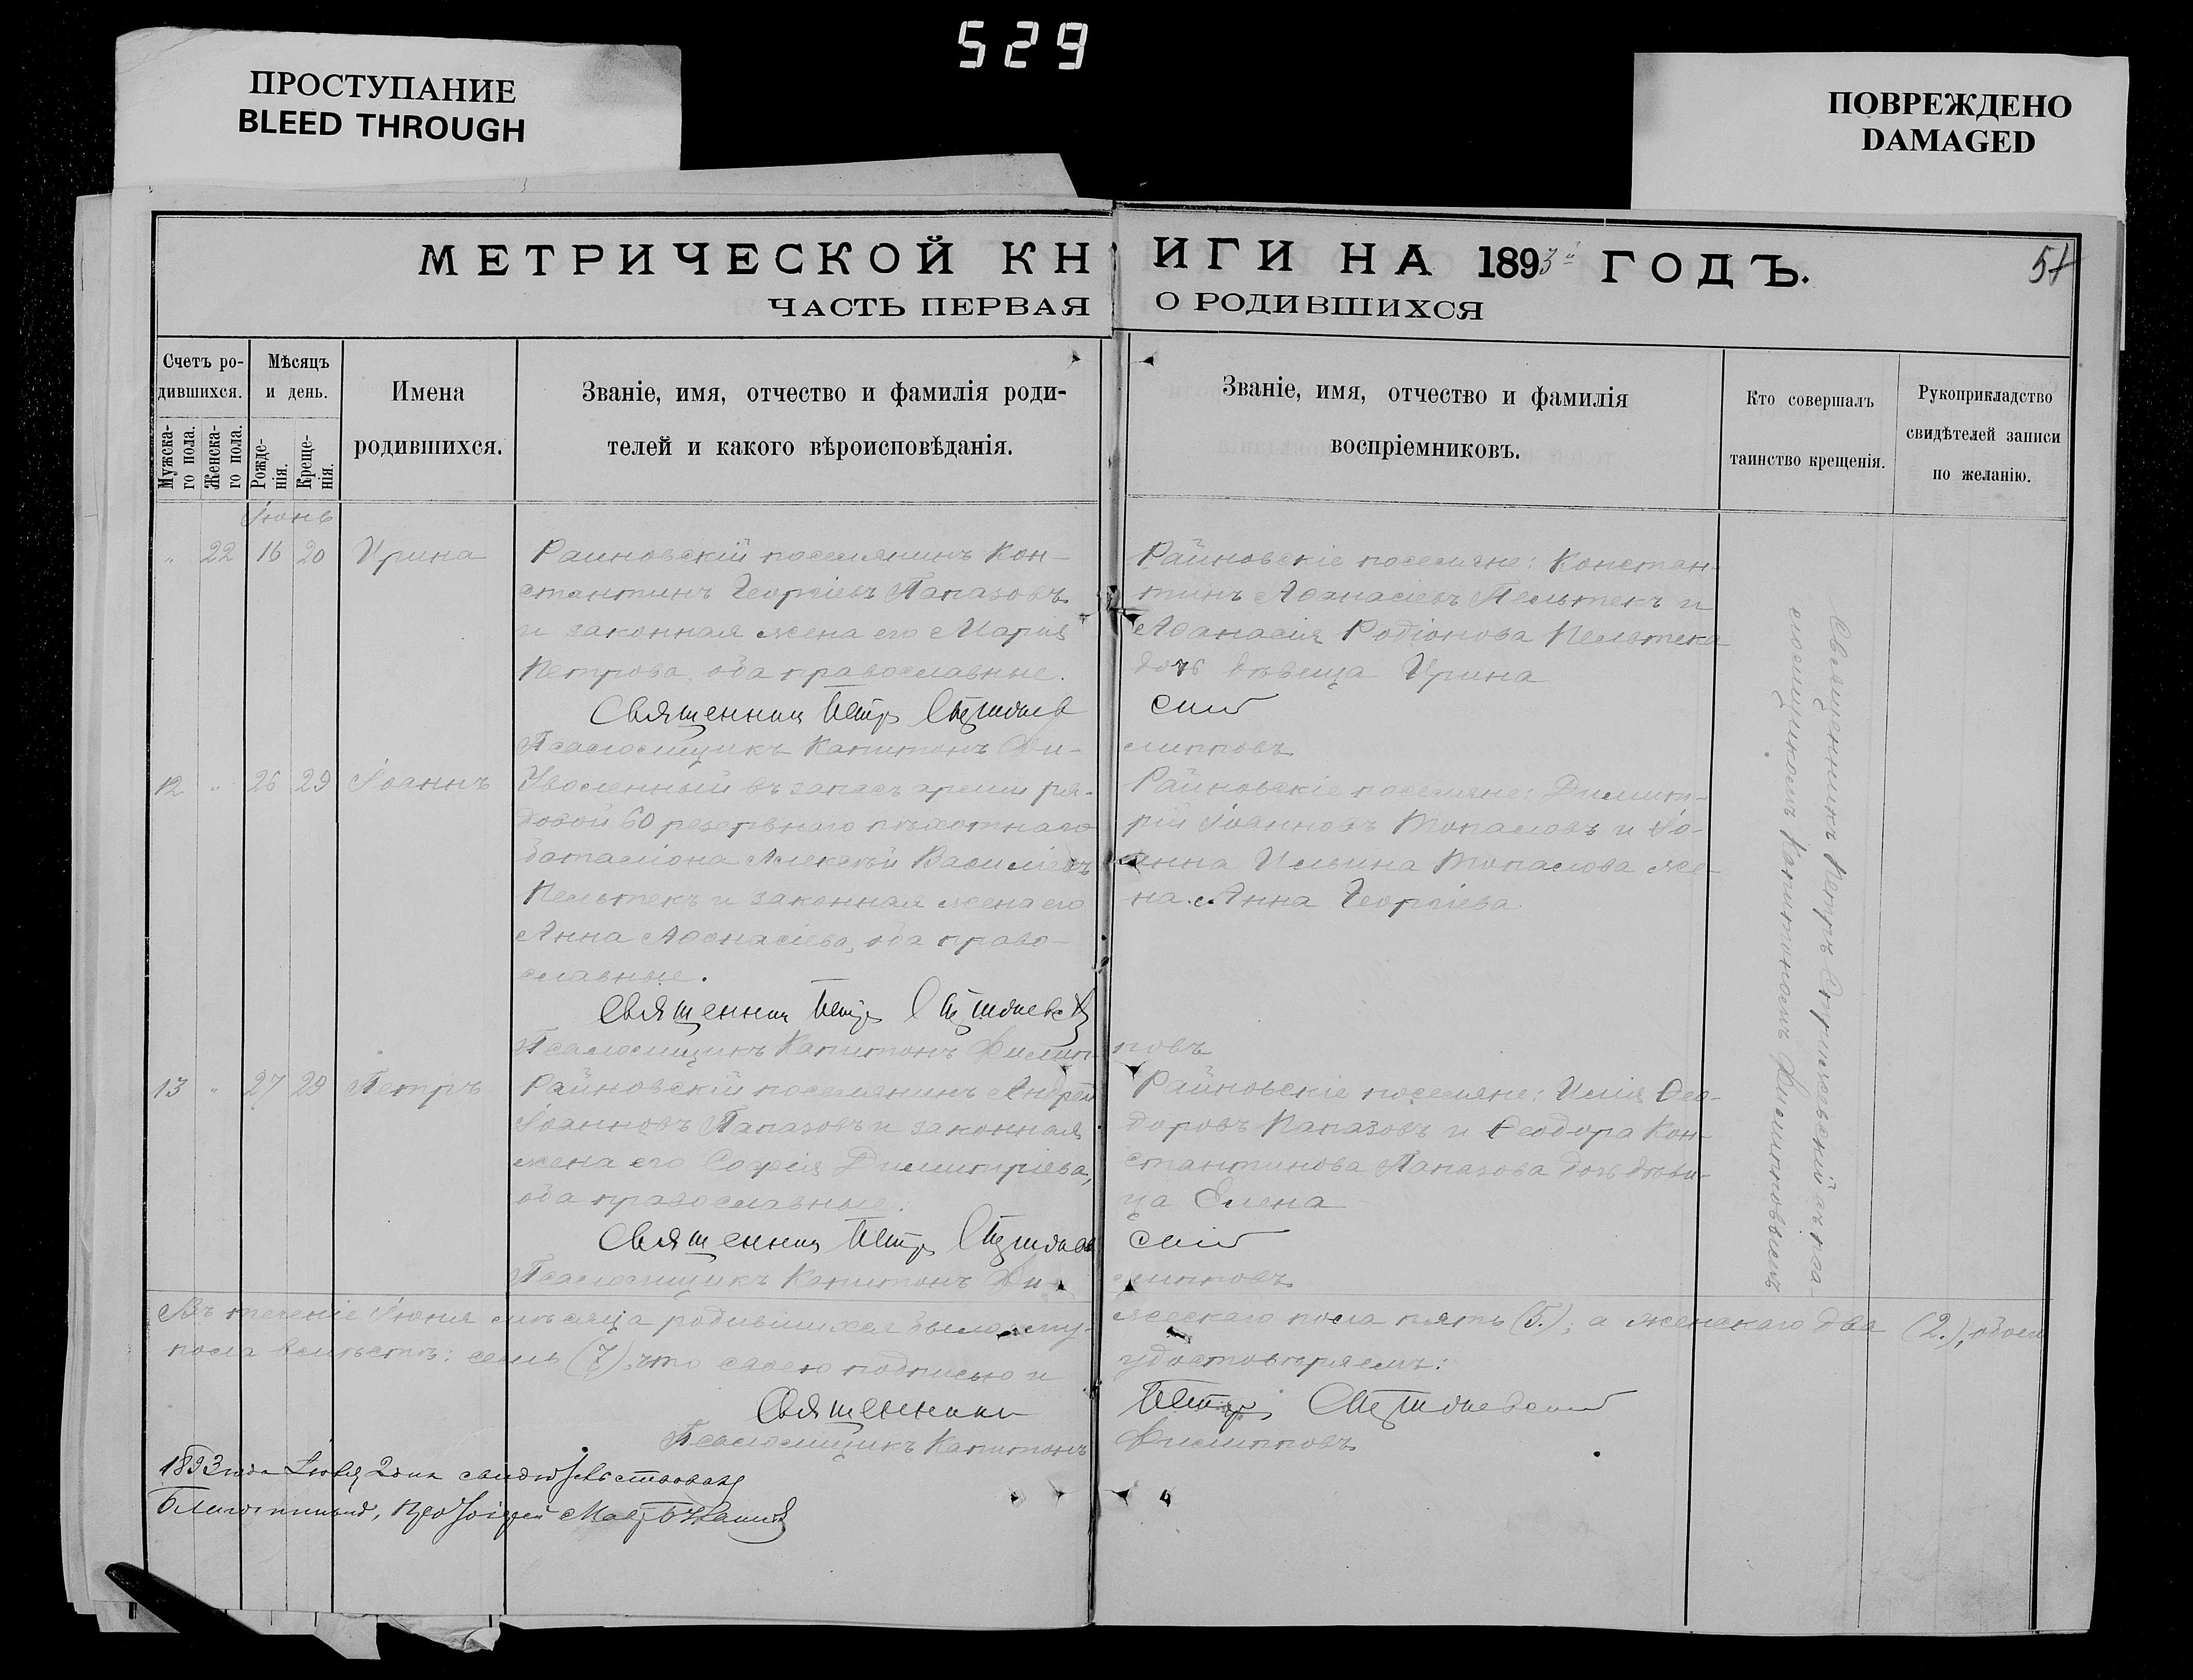 529
ПРОСТУПАНИЕ
BLEED THROUGH
ПОВРЕЖДЕНО
DAMAGED
МЕТРИЧЕСКОЙ КНИГИ НА 1893й ГОДЪ.
51
ЧАСТЬ ПЕРВАЯ О РОДИВШИХСЯ
Счетъ ро-
дившихся.
Мужска-
го пола.
Женска-
го пола.
Мѣсяцъ
и день.
Рожде-
нія.
Креще-
нія.
Имена
родившихся.
Званіе, имя, отчество и фамилія роди-
телей и какого вѣроисповѣданія.
Званіе, имя, отчество и фамилія
воспріемниковъ.
Кто совершалъ
таинство крещенія.
Рукоприкладство
свидѣтелей записи
по желанію.
Іюнь
" 22 16 20 Ирина
Раиновскій поселянинъ Кон-
стантинъ Георгіевъ Папазовъ
и законная жена его Марія
Петрова, оба православные.
Священник Петр
Псаломщикъ Капитонъ Фи-
Райновскіе поселяне: Констан-
тинъ Аѳанасіевъ Пельтекъ и
Аѳанасія Родіонова Пельтека
дочь дѣвица Ирина
липповъ
12 " 26 29 Іоаннъ
Уволенный въ запасъ арміи ря-
довой 60 резервнаго пѣхотнаго
баталіона Алексѣй Василіевъ
Пельтекъ и законная жена его
Анна Аѳанасіева, оба право-
славные.
Священник Петр
Псаломщикъ Капитонъ Филип-
Райновскіе поселяне: Димит-
рій Іоанновъ Топаловъ и Іо-
анна Ильина Топалова же-
на Анна Георгіева
повъ
13 " 27 29 Петръ
Райновскій поселянинъ Андрей
Іоанновъ Папазовъ и законная
жена его Софія Димитріева,
оба православные.
Священник Петр
Псаломщикъ Капитонъ Фи-
Райновскіе поселяне: Илія Ѳео-
доровъ Папазовъ и Ѳеодора Кон-
стантинова Папазова дочь дѣви-
ца Елена
липповъ
Священникъ Петръ съ пса-
ломщикомъ Капитономъ Филипповымъ
Въ теченіе Іюня мѣсяца родившихся было: му-
жескаго пола пять (5.); а женскаго два (2.), обоего
пола вмѣстѣ: семь (7), что своею подписью и
удостовѣряемъ:
Священник Петр
Псаломщикъ Капитонъ Филипповъ
1893 года Іюля 2 дня свидѣтельствовалъ
Благочинный, Протоіерей